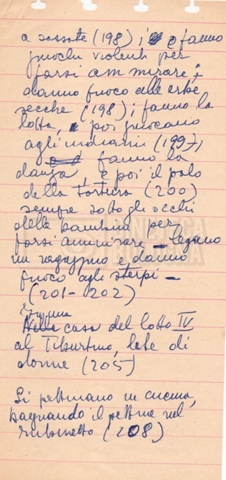 a sassate (198); e fanno
giochi violenti per
farsi ammirare;
danno fuoco alle erbe
secche (198); fanno la
lotta, poi giocano
agli indiani (199);
fanno la
danza e poi il palo
della tortura (200)
sempre sotto gli occhi
delle bambine per
farsi ammirare – legano
un ragazzino e danno
fuoco agli sterpi –
(201-202)
Nella casa del lotto IV
al Tiburtino, lite di
donne (205)
Si pettinano in cucina,
bagnando il pettine nel
rubinetto (208)